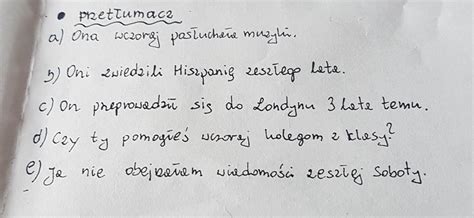 • przetłumacz
a) Ona wczoraj posłuchała muzyki.
b) Oni zwiedzili Hiszpanię zeszłego lata.
c) On przeprowadził się do Londynu 3 lata temu.
d) Czy ty pomogłeś wczoraj kolegom z klasy?
e) Ja nie obejrzałam wiadomości zeszłej soboty.